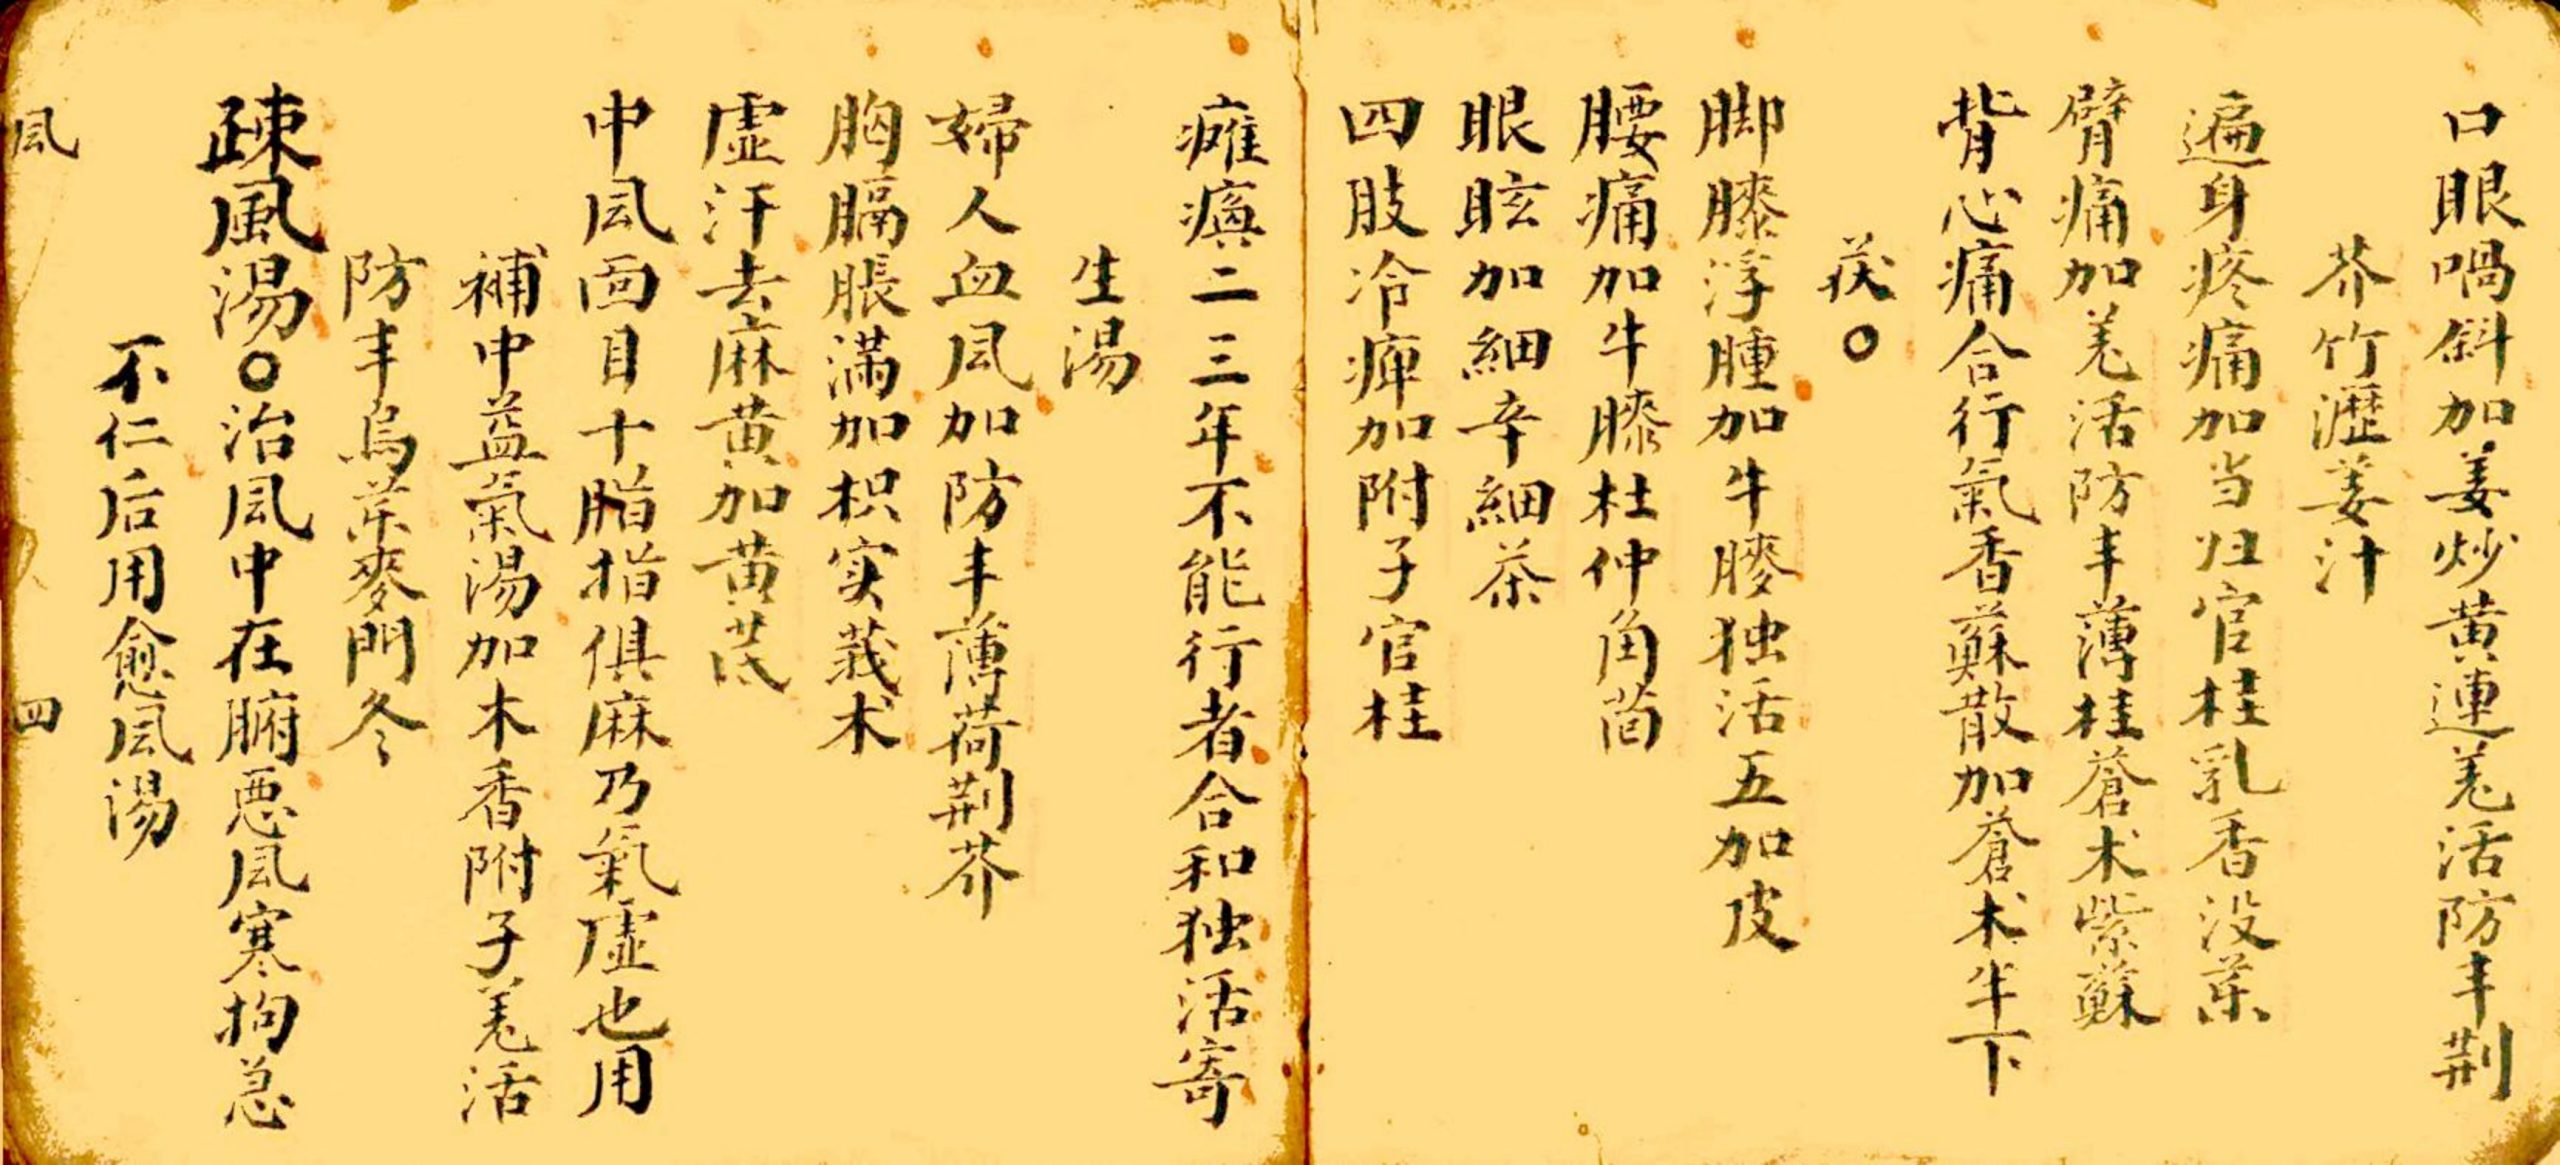 口眼喎斜加姜炒黄連羌活防丰荆
芥竹瀝姜汁
遍身疼痛加当归官桂乳香没茱
臂痛加羌活防丰薄桂蒼术紫蘇
背心痛合行氣香蘇散加蒼术半下
茯〇
脚膝浮腫加牛膝独活五加皮
腰痛加牛膝杜仲角茴
眼眩加細辛細茶
四肢冷痺加附子官桂
瘫瘓二三年不能行者合和独活寄
生湯
婦人血凨加防丰薄荷荆芥
胸膈脹滿加枳实莪术
虚汗去麻黄加黄芪
中凨面目十脂指俱麻乃氣虚也用
補中益氣湯加木香附子羌活
防丰烏茱麥門冬
疎風湯〇治凨中在腑惡凨寒拘急
不仁后用愈凨湯
凨 四